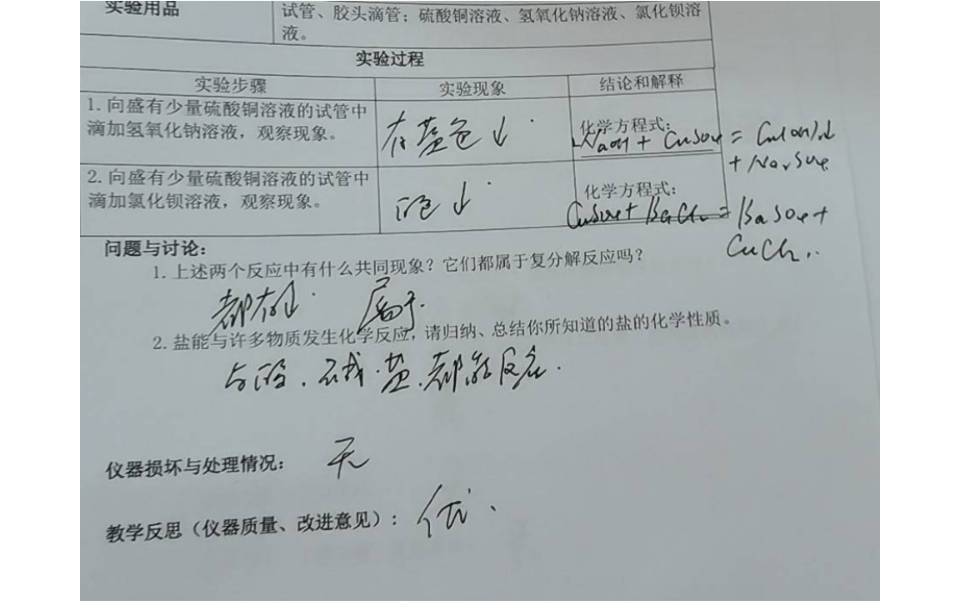 实验用品
试管、胶头滴管；硫酸铜溶液、氢氧化钠溶液、氯化钡溶
液。
实验过程
实验步骤 实验现象 结论和解释
1.向盛有少量硫酸铜溶液的试管中
滴加氢氧化钠溶液，观察现象。
有蓝色↓.
化学方程式：
NaOH + CuSO4 = Cu(OH)2↓
+ Na2SO4
2.向盛有少量硫酸铜溶液的试管中
滴加氯化钡溶液，观察现象。
白色↓.
化学方程式：
CuSO4 + BaCl2 = BaSO4 +
CuCl2.
问题与讨论：
1.上述两个反应中有什么共同现象？它们都属于复分解反应吗？
都有↓. 属于.
2.盐能与许多物质发生化学反应，请归纳、总结你所知道的盐的化学性质。
与酸、碱.盐.都能反应.
仪器损坏与处理情况： 无
教学反思（仪器质量、改进意见）： 优.